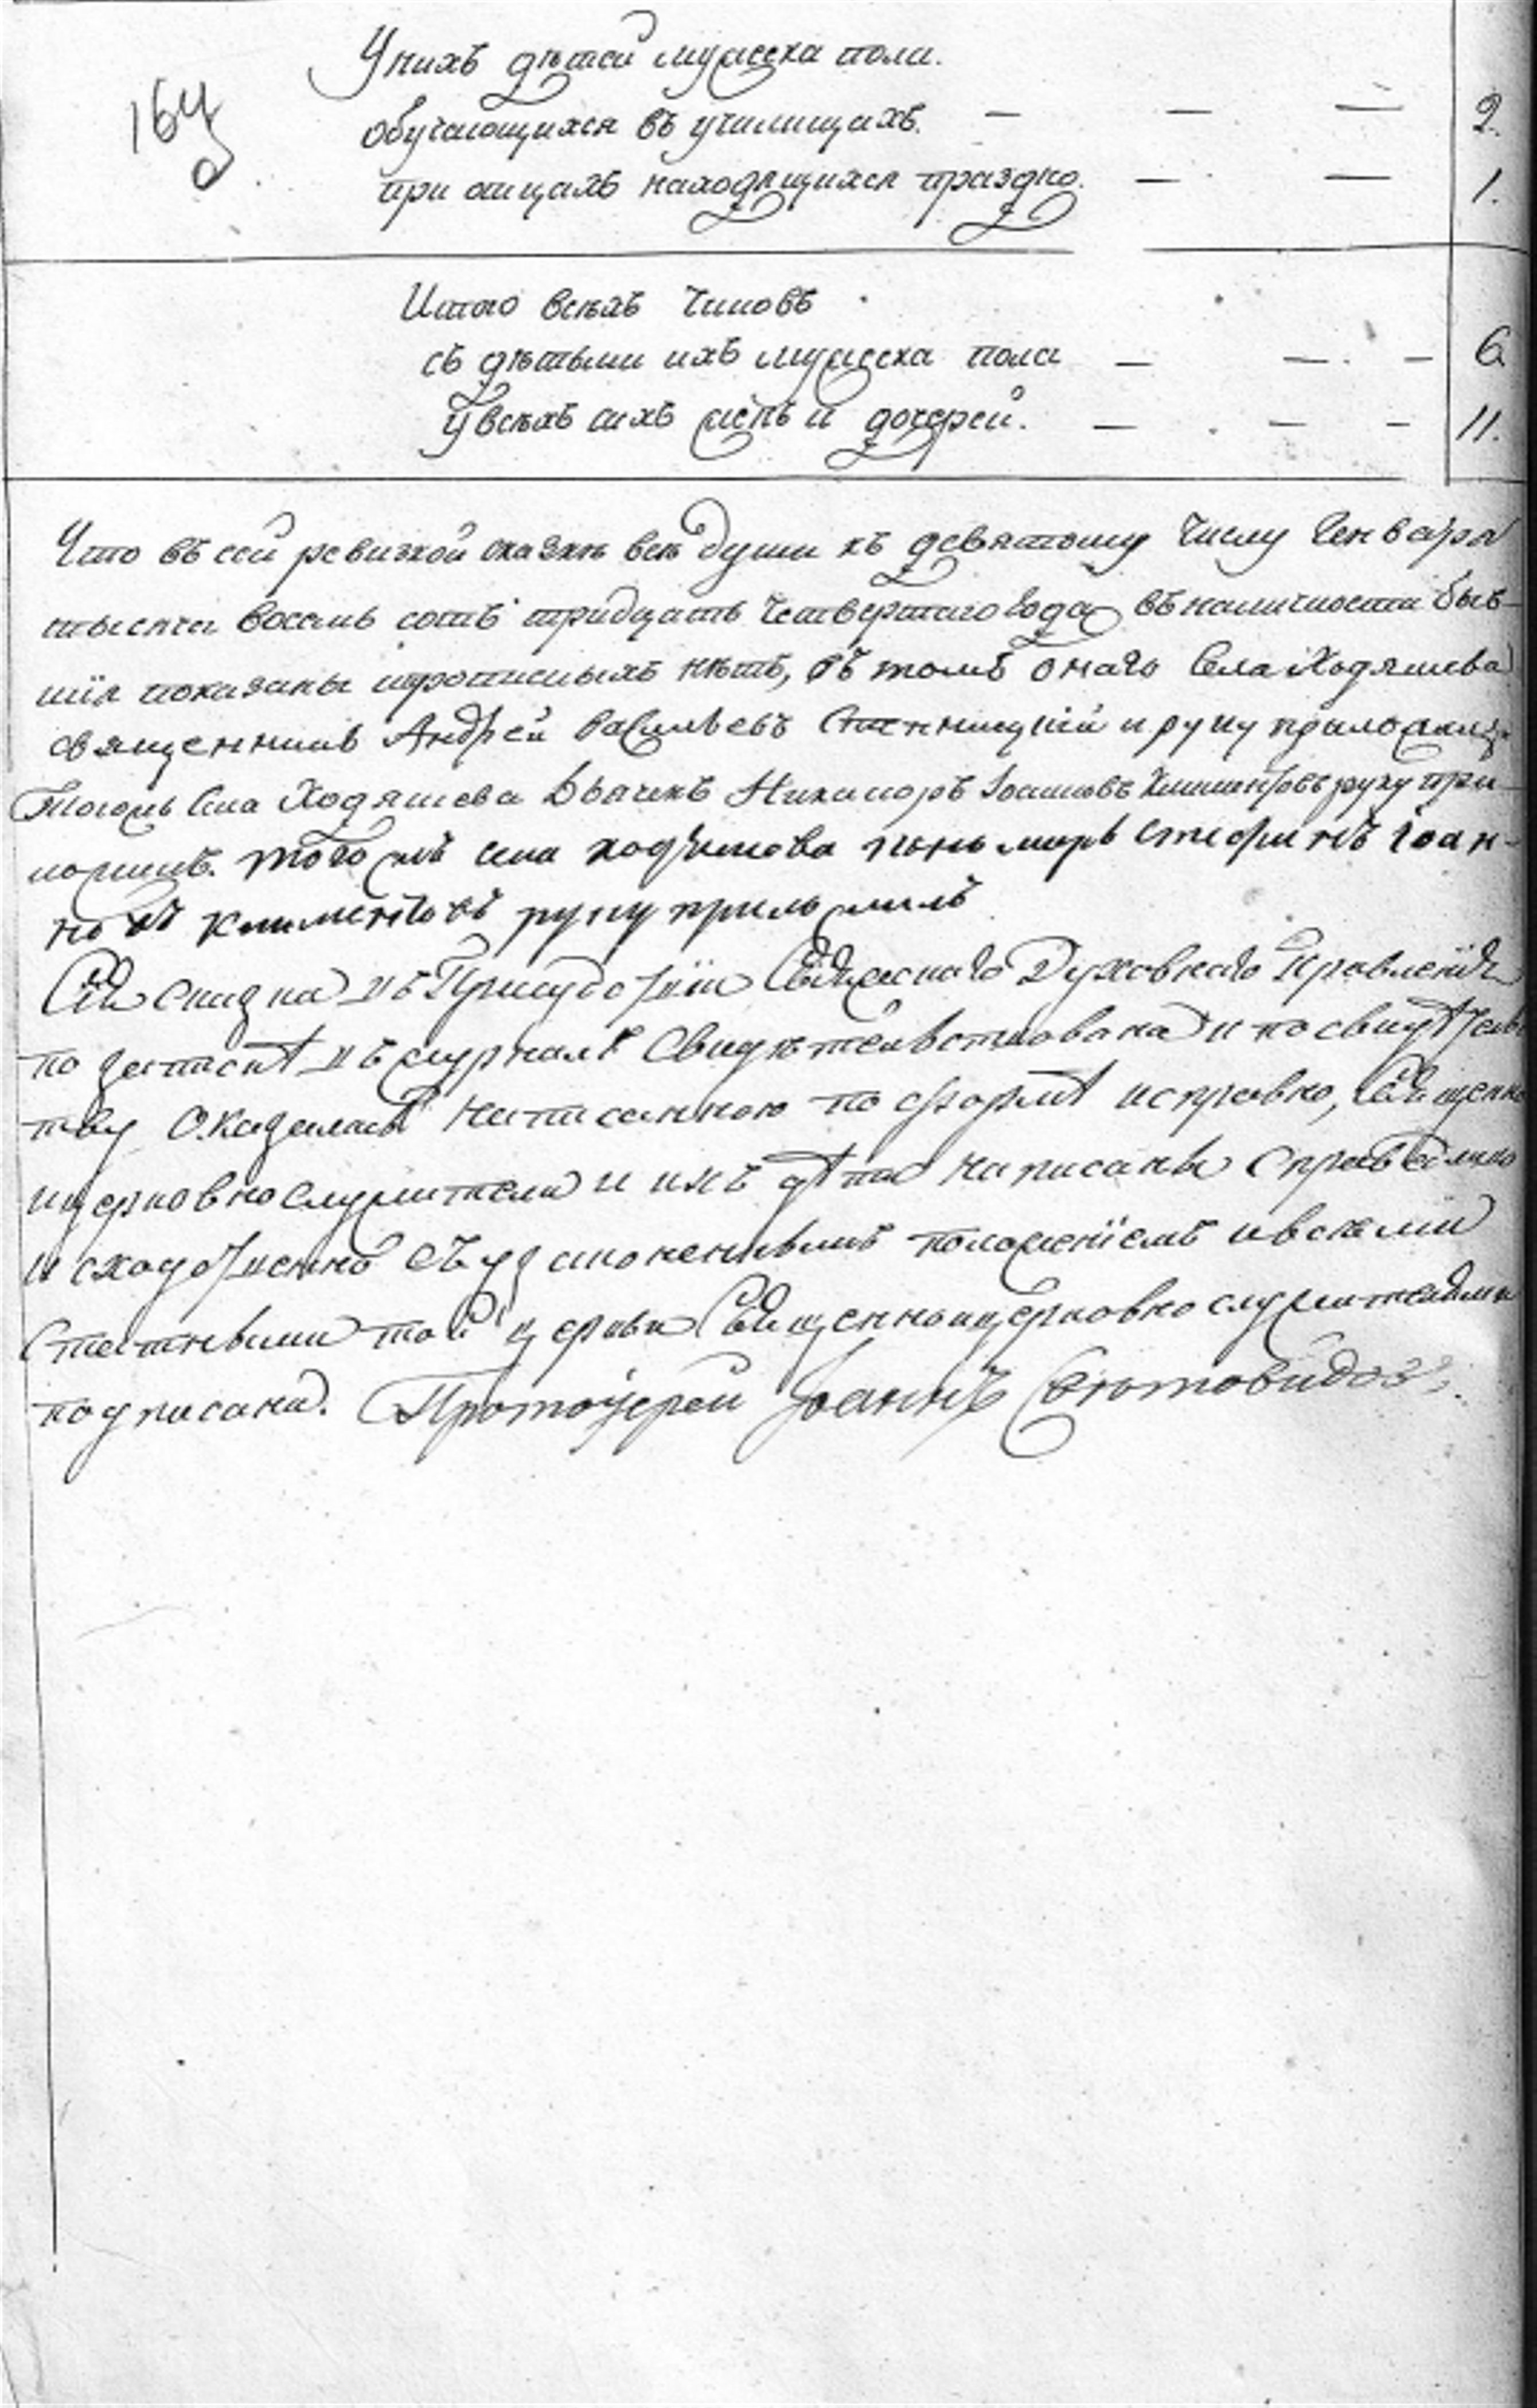 164
У нихъ дѣтей мужеска пола.
обучающихся въ училищахъ. — — — 2.
при отцахъ находящихся праздно. — — 1.
Итого всѣхъ чиновъ
съ дѣтьми ихъ мужеска пола — — — 6
у всѣхъ ихъ женъ и дочерей. — — — 11.
Что въ сей ревизкой сказкѣ всѣ души къ девятому числу Генваря
тысяча восемь сотъ тридцать четвертаго года въ наличности быв-
шія показаны и прописныхъ нѣтъ, въ томъ онаго Села Ходяшева
священникъ Андрей Васильевъ и руку приложилъ.
Тогожь Села Ходяшева Дьячекъ Никаноръ Іоанновъ Климентовъ руку при-
ложилъ. Того жъ села ходяшева пономарь Стефанъ Іоан-
новъ Климентовъ руку приложилъ
Сія Сказка въ Присудствіи Свіяжскаго Духовнаго Правленія
по записи въ журналѣ Свидѣтельствована и по свидѣтельс
тву Оказалась написанною по формѣ исправно, Священно
и церковнослужители и ихъ дѣти написаны справедливо
и сходственно съ узаконеннымъ положеніемъ и всеми
Статными той церкви Священноицерковнослужителями
подписана. Протоіерей Іоаннъ Святовидовъ.